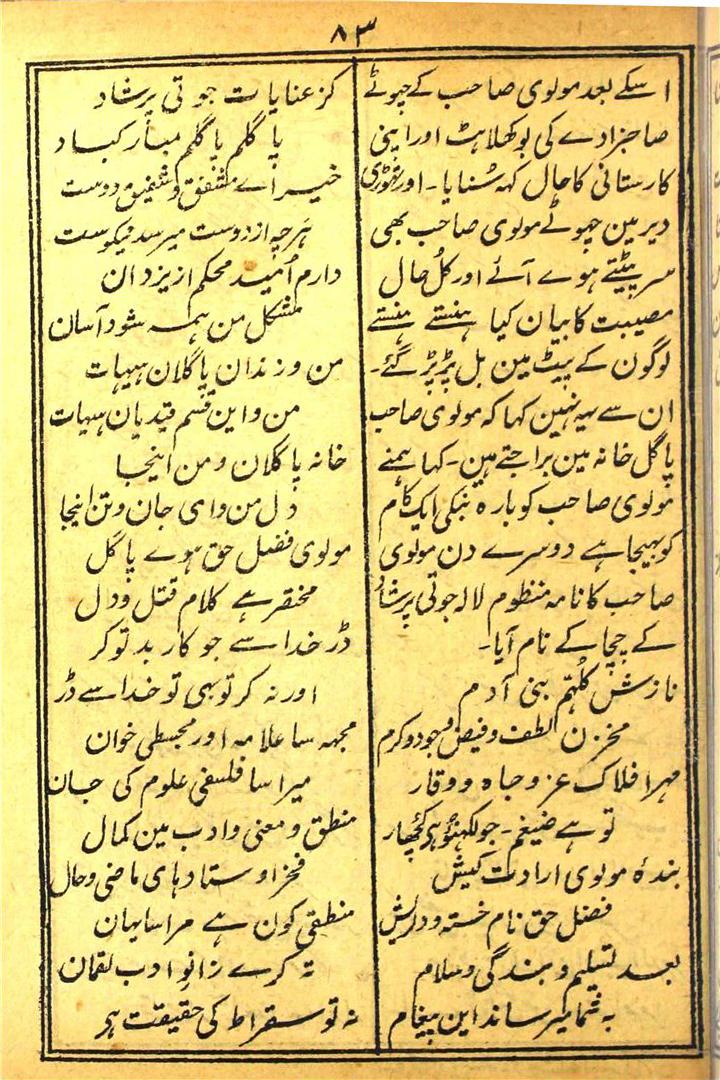 ۸۳
اسکے بعد مولوی صاحب کے چھوٹے
صاحبزادے کی بوکھلاہٹ اور اپنی
کارستانی کا حال کہہ سُنایا۔ اور تھوڑی
دیر مین چھوٹے مولوی صاحب بھی
سر پیٹتے ہوے آئے اور کُل حال
مصیبت کا بیان کیا ہنستے ہنستے
لوگون کے پیٹ مین بل پڑ پڑ گئے۔
ان سے یہ نہین کہا کہ مولوی صاحب
پاگل خانہ مین براجتے ہین۔ کہا ہمنے
مولوی صاحب کو بارہ بنکی ایک کام
کو بھیجا ہے دوسرے دن مولوی
صاحب کا نامہ منظوم لالہ جوتی پرشاد
کے چچا کے نام آیا۔
نازش کُلہم بنی آدم
مخزن الطف و فیض و جود و کرم
مہر افلاک عز و جاہ و وقار
تو ہے ضیغم۔ جو لکھنؤ ہر کچھار
بندۂ مولوی ارادت کیش
فضل حق نام خستہ و دلریش
بعد تسلیم و بندگی و سلام
بہ شما میرساند این پیغام
کز عنایات جوتی پرشاد
پاگلم پاگلم مبارکباد
خیر اے مشفق و شفیق و دوست
ہرچہ از دوست میرسد نیکوست
دارم اُمید محکم از یزدان
مشکل من ہمہ شود آسان
من و زندان پاگلان ہیہات
من و این قسم قیدیان ہیہات
خانہ پاگلان و من اینجا
دل من وای جان و تن اینجا
مولوی فضل حق ہوے پاگل
مختصر ہے کلام قتل و دل
ڈر خدا سے جو کار بد تو کر
اور نہ کر تو بھی تو خدا سے ڈر
مجھ سا علامہ اور مجسطی خوان
میرا سا فلسفی علوم کی جان
منطق و معنی و ادب مین کمال
فخر اوستادہای ماضی و حال
منطقی کون ہے مرا سا یہان
تہ کرے زانوِ ادب لقمان
نہ تو سقراط کی حقیقت ہر